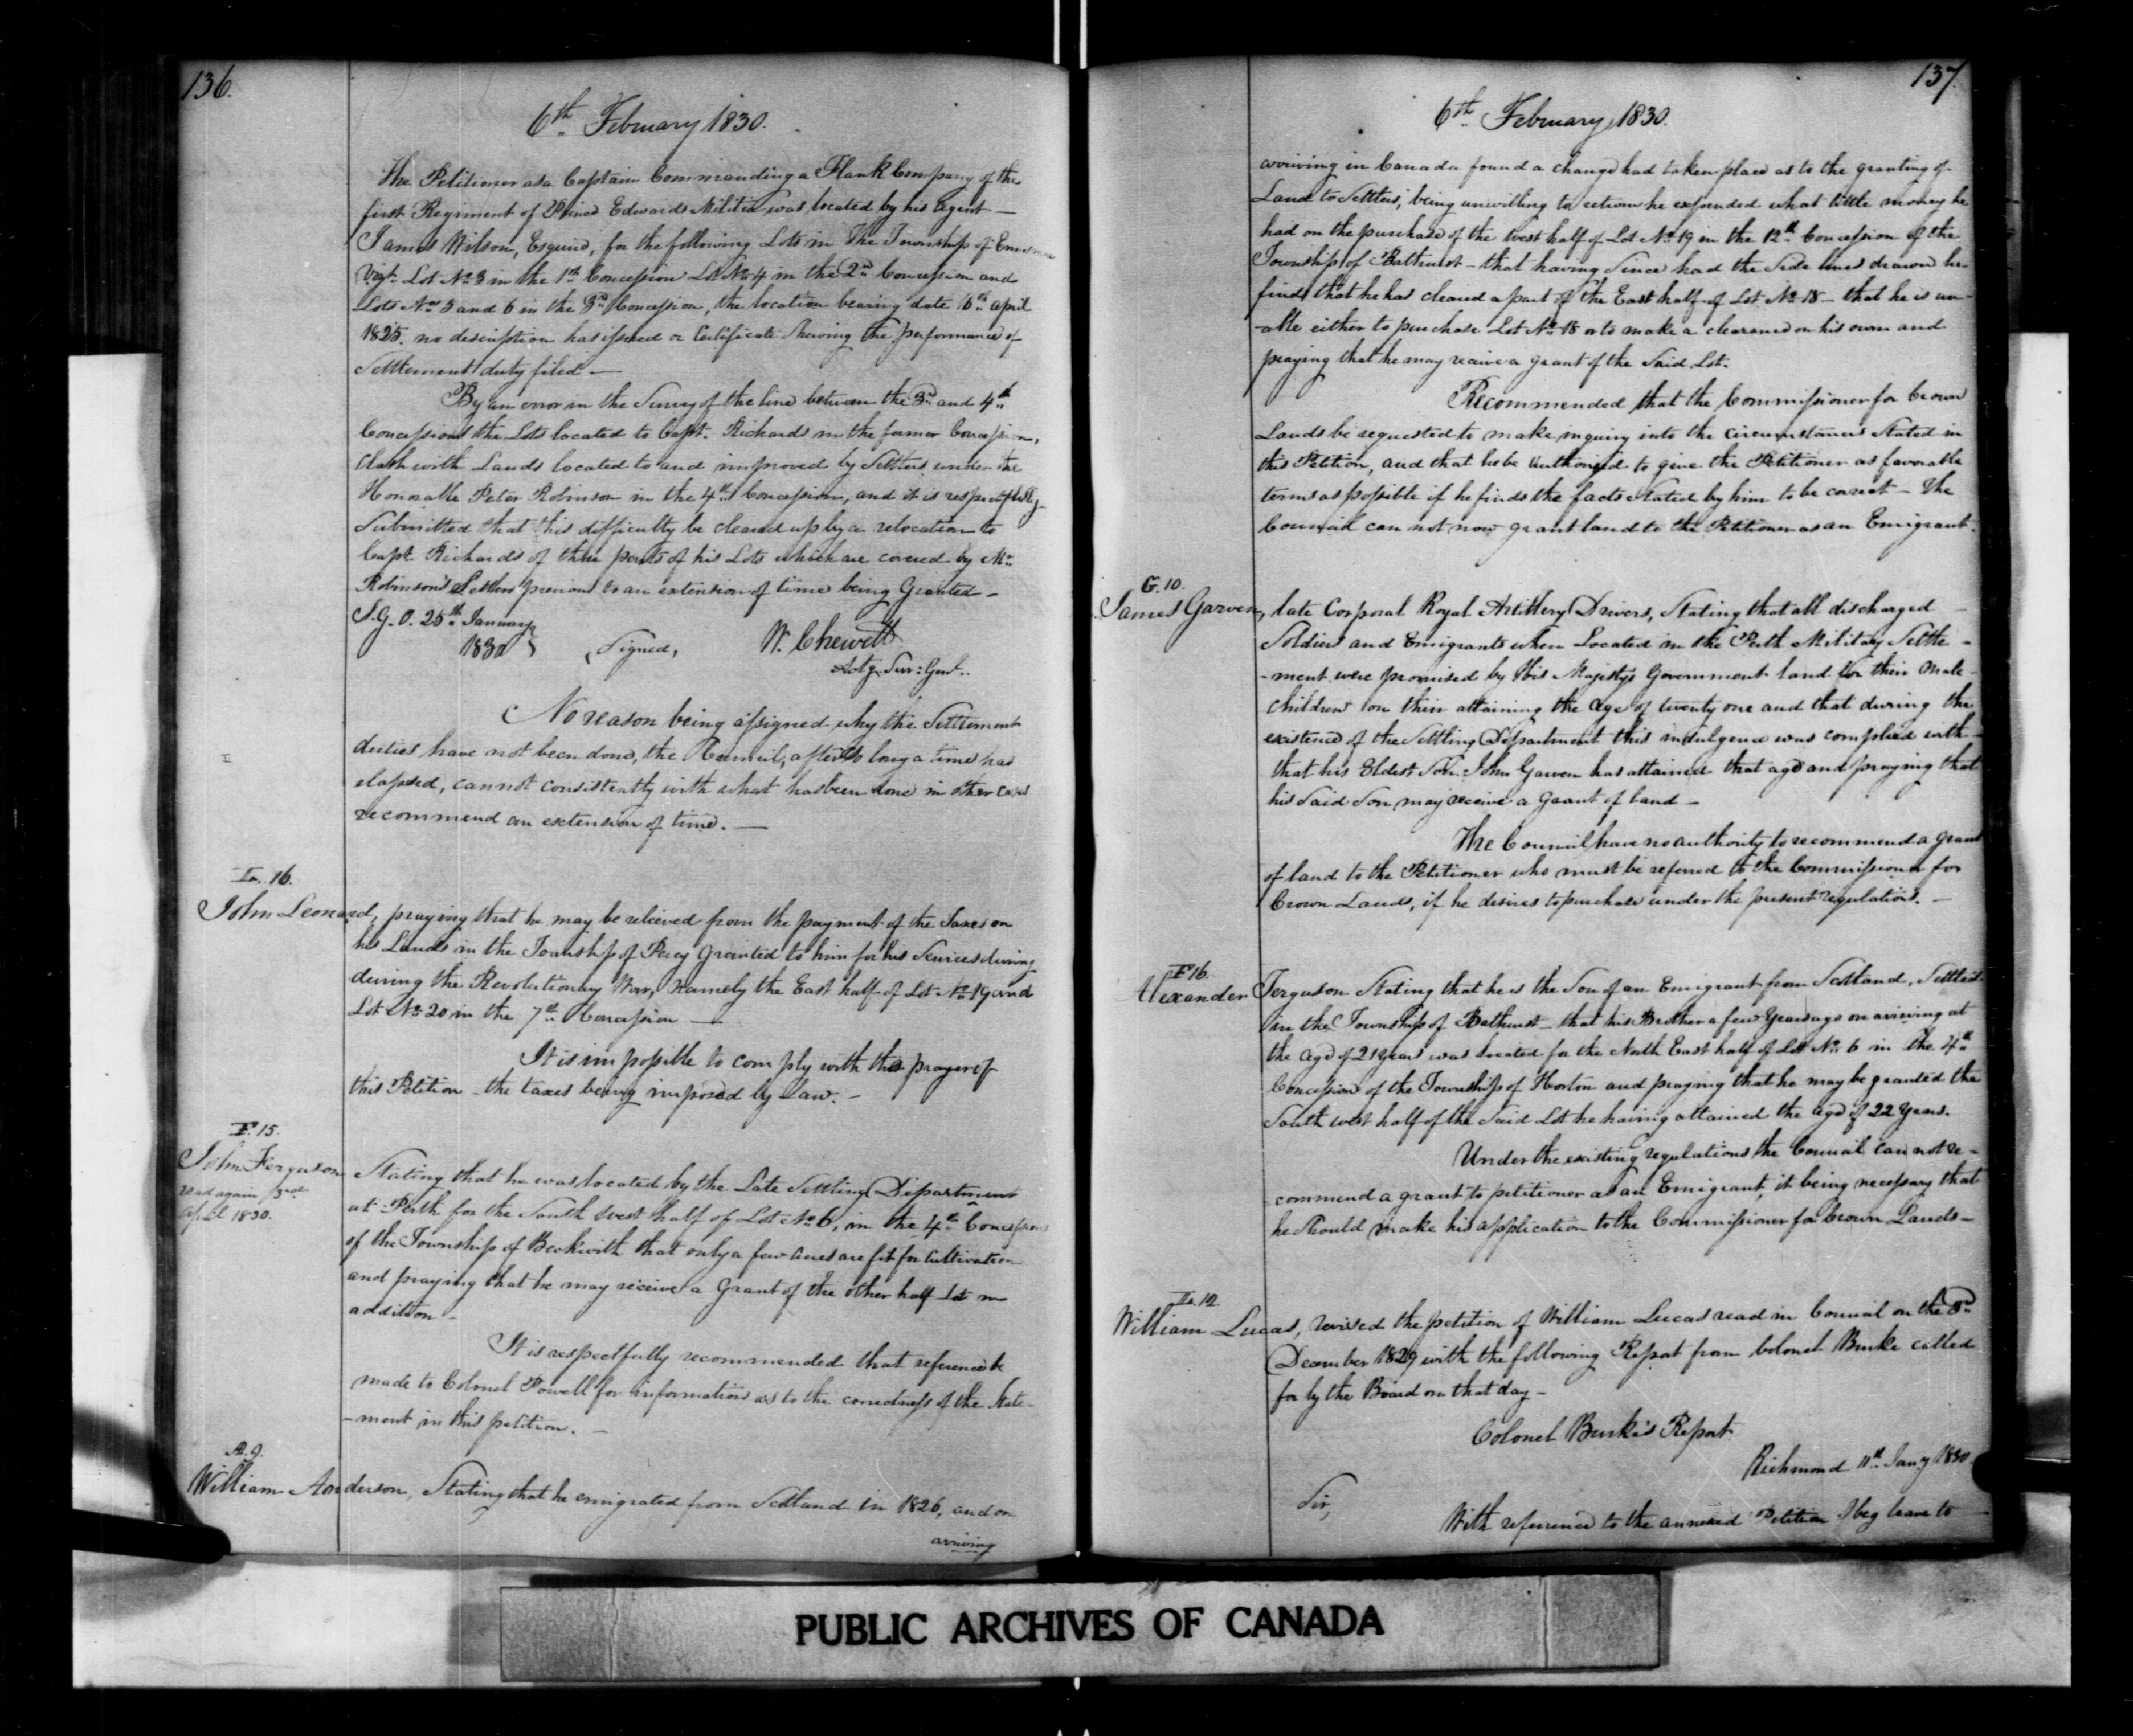 136.
6th February 1830.
The Petitioner as a Captain Commanding a Flank Company of the
first Regiment of Prince Edwards Militia was located by his Agent —
James Wilson, Esquire, for the following Lots in the Township of
Vizt. Lot No. 3 in the 1st Concession Lot No. 4 in the 2nd Concession and
Lots Nos 5 and 6 in the 3rd Concession, the location bearing date 6th April
1825. no description has issued or Certificate Shewing the performance of
Settlement duty filed —
By an error in the Survey of the line between the 3rd and 4th
Concessions the Lots located to Capt. Richards in the former Concession,
clash with Lands located to and improved by Settlers under the
Honorable Peter Robinson in the 4th Concession, and it is respectfully
Submitted that this difficulty be cleared up by a relocation to
Capt. Richards of those parts of his Lots which are covered by Mr.
Robinson's Settlers previous to an extension of time being Granted —
S.G.O. 25th January
1830 } (Signed, W. Chewett
Actg. Surv: Genl..
No reason being assigned why the Settlement
duties have not been done, the Council, after so long a time has
elapsed, cannot consistently with what has been done in other cases
recommend an extension of time. —
L. 16.
John Leonard, praying that he may be relieved from the payment of the Taxes on
his Lands in the Township of Percy Granted to him for his Services during
during the Revolutionary War, namely the East half of Lot No. 19 and
Lot No. 20 in the 7th Concession —
It is impossible to comply with the prayer of
this Petition - the taxes being imposed by Law. —
F. 15.
John Ferguson Stating that he was located by the Late Settling Department
read again 3rd
April 1830.
at Perth for the South West half of Lot No. 6, in the 4th Concession
of the Township of Beckwith that only a few acres are fit for Cultivation
and praying that he may receive a Grant of the other half Lot in
addition —
It is respectfully recommended that reference be
made to Colonel Powell for information as to the correctness of the State-
-ment in this petition. —
A. 9.
William Anderson, Stating that he emigrated from Scotland in 1826, and on
arriving
137.
6th February 1830.
arriving in Canada found a change had taken place as to the granting of
Land to Settlers, being unwilling to return he expended what little money he
had on the purchase of the West half of Lot No. 19 in the 12th Concession of the
Township of Bathurst — that having Since had the Side lines drawn he
finds that he has cleared a part of the East half of Lot No. 18 — that he is un-
-able either to purchase Lot No. 18 or to make a clearance on his own and
praying that he may receive a grant of the Said Lot.
Recommended that the Commissioner for Crown
Lands be requested to make inquiry into the circumstances Stated in
this Petition, and that he be Authorized to give the Petitioner as favorable
terms as possible if he finds the facts Stated by him to be correct — The
Council can not now grant land to the Petitioner as an Emigrant.
G. 10.
James Garven, late Corporal Royal Artillery Drivers, Stating that all discharged
Soldiers and Emigrants when Located in the Perth Military Settle-
-ment were promised by His Majesty's Government land for their Male
Children on their attaining the age of twenty one and that during the
existence of the Settling Department this indulgence was complied with —
that his Eldest Son John Garven has attained that age and praying that
his Said Son may receive a Grant of land —
The Council have no authority to recommend a grant
of land to the Petitioner who must be referred to the Commissioner for
Crown Lands, if he desires to purchase under the present regulations. —
F 16.
Alexander Ferguson Stating that he is the Son of an Emigrant from Scotland, Settled
in the Township of Bathurst — that his Brother a few Years ago on arriving at
the age of 21 years was located for the North East half of Lot No. 6 in the 4th
Concession of the Township of Horton and praying that he may be granted the
South west half of the Said Lot he having attained the age of 22 Years.
Under the existing regulations the Council can not re-
commend a grant to petitioner as an Emigrant, it being necessary that
he should make his application to the Commissioner for Crown Lands —
L. 12.
William Lucas, the petition of William Lucas read in Council on the 3rd
December 1829 with the following Report from Colonel Burke called
for by the Board on that day —
Colonel Burke's Report.
Richmond 11th Jany 1830
Sir,
With reference to the annexed Petition I beg leave to
PUBLIC ARCHIVES OF CANADA